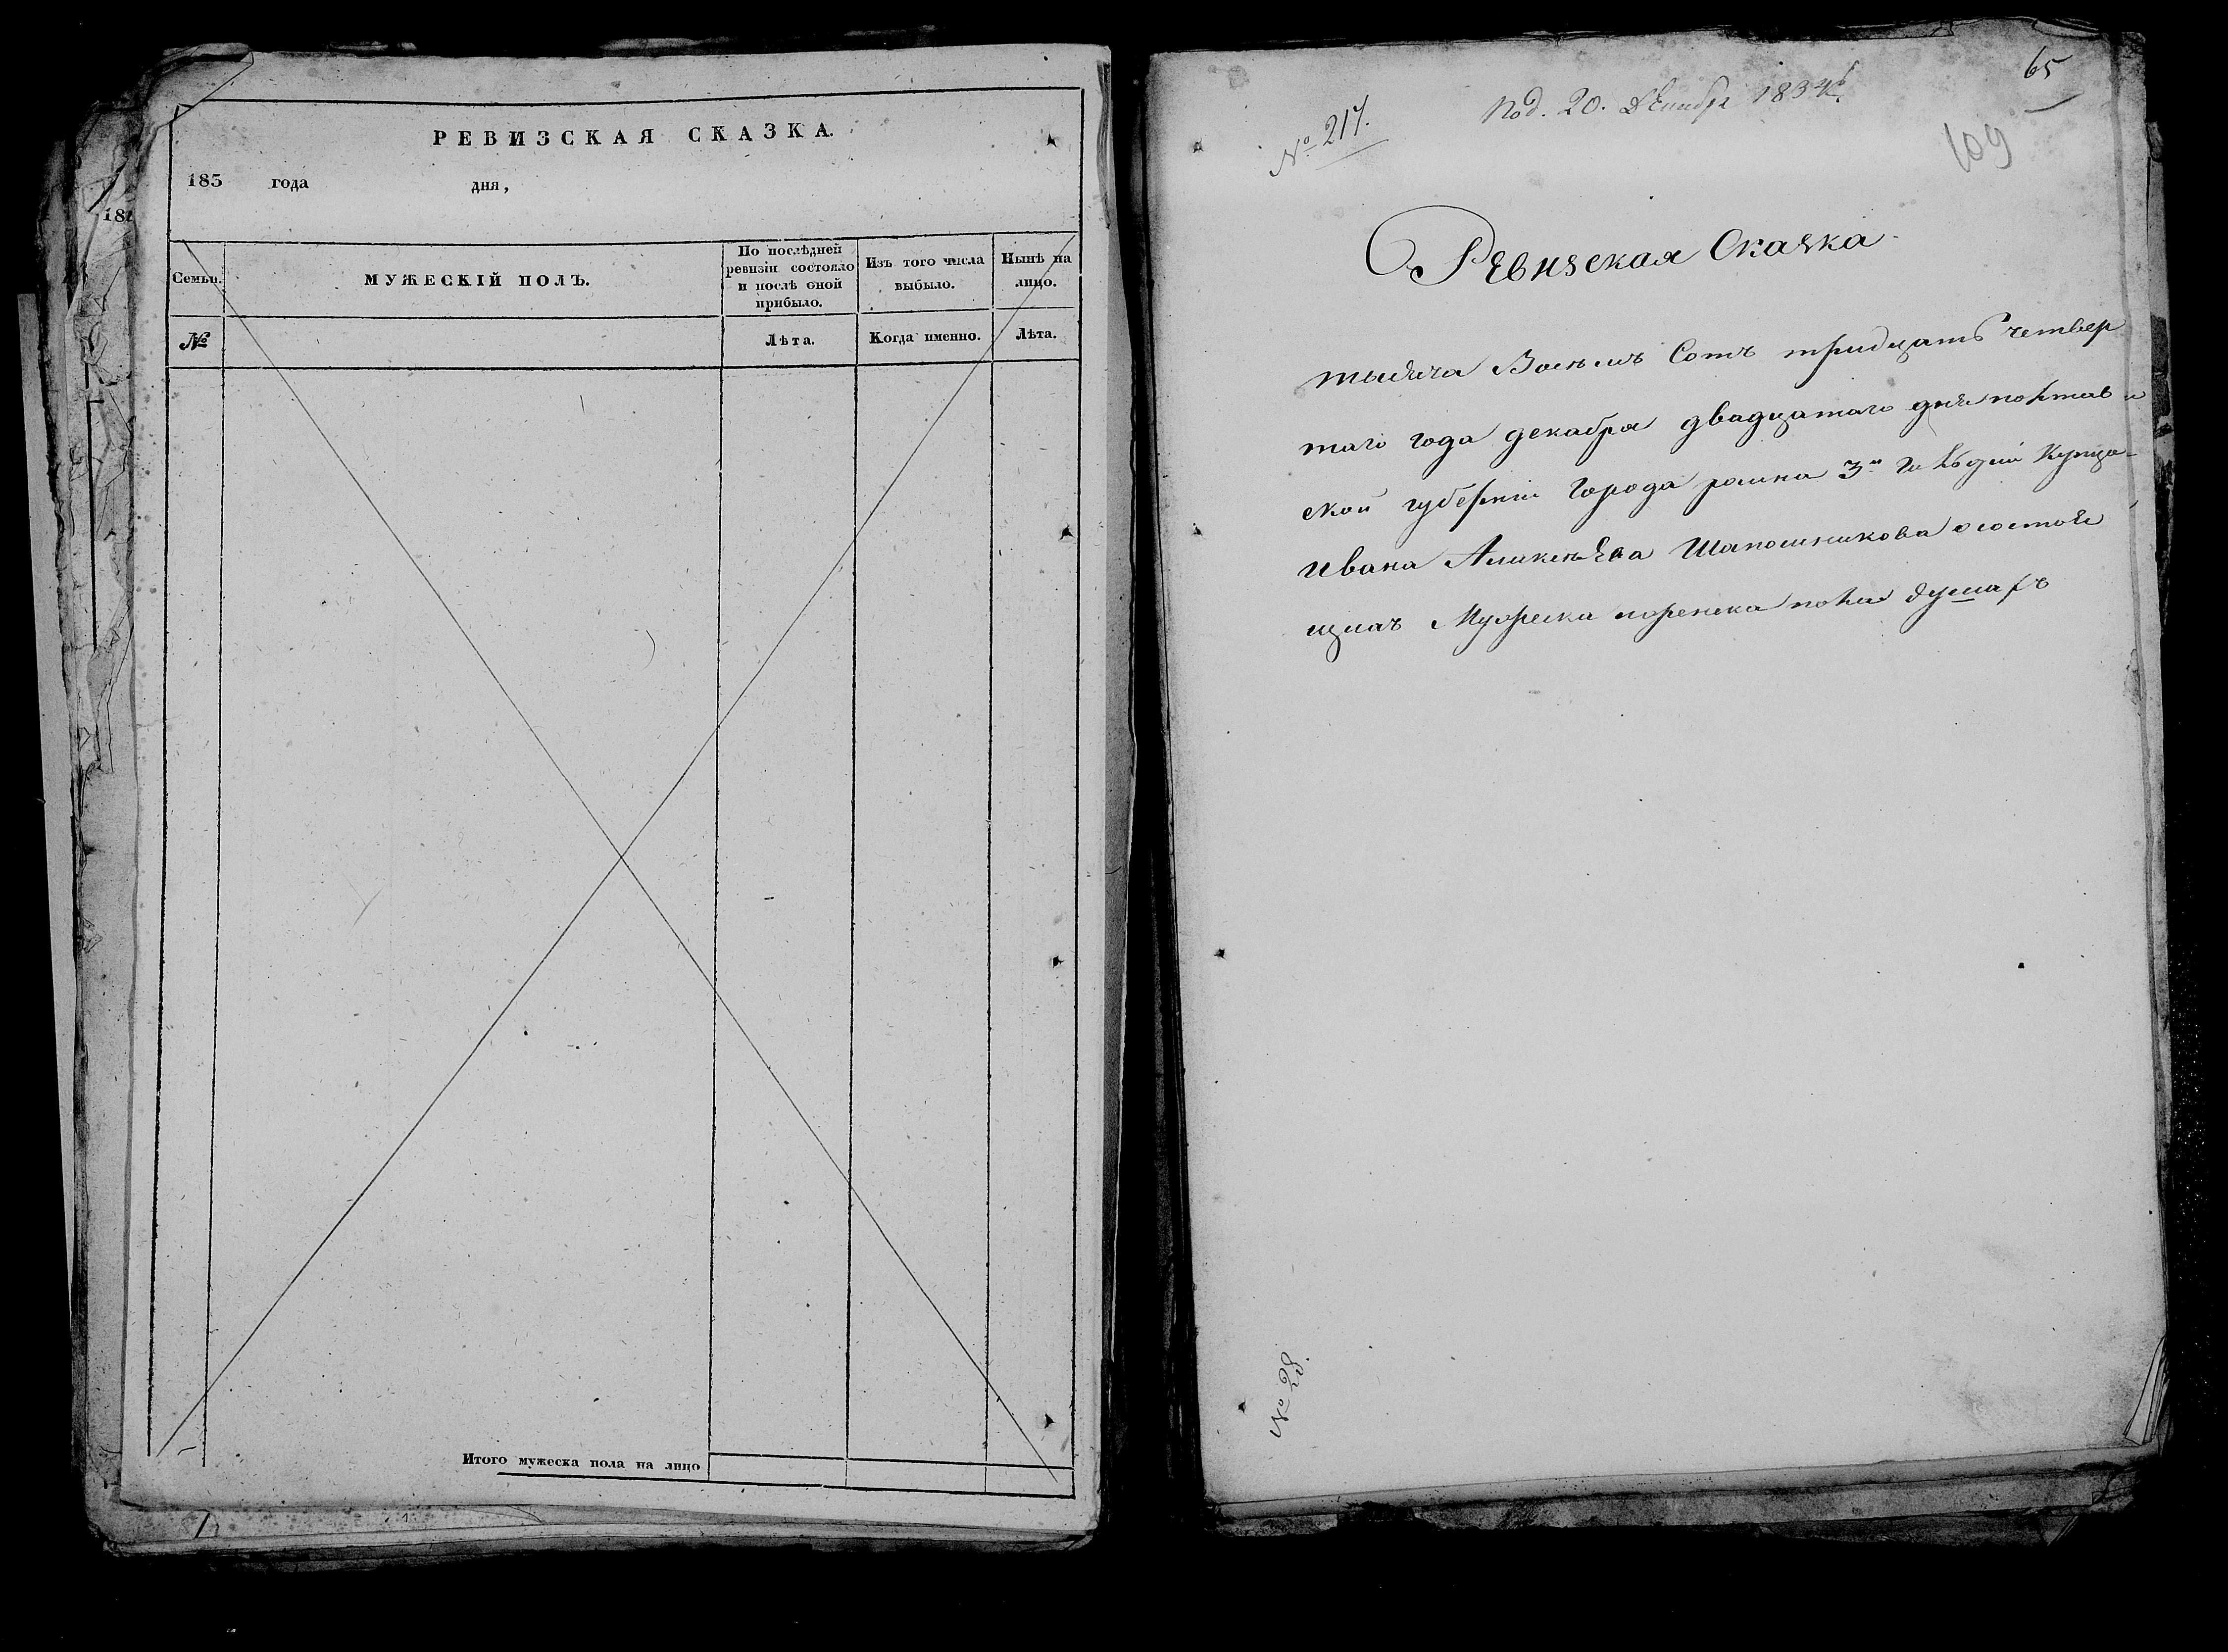 РЕВИЗСКАЯ СКАЗКА.
185 года дня,
181
Семьи.
МУЖЕСКІЙ ПОЛЪ.
По послѣдней
ревизіи состояло
и послѣ оной
прибыло.
Изъ того числа
выбыло.
Нынѣ на
лицо.
№
Лѣта.
Когда именно.
Лѣта.
Итого мужеска пола на лицо
65
№ 217.
Под. 20. Декабря 1834
109
Ревизская Сказка
тысяча Восемь Сотъ тридцать четвер
таго года декабря двадцатаго дня полтав
ской губерніи города ромна 3й гильдіи Купца
Ивана Шапошникова о состоя
щихъ Мужеска пола душахъ
№ 28.